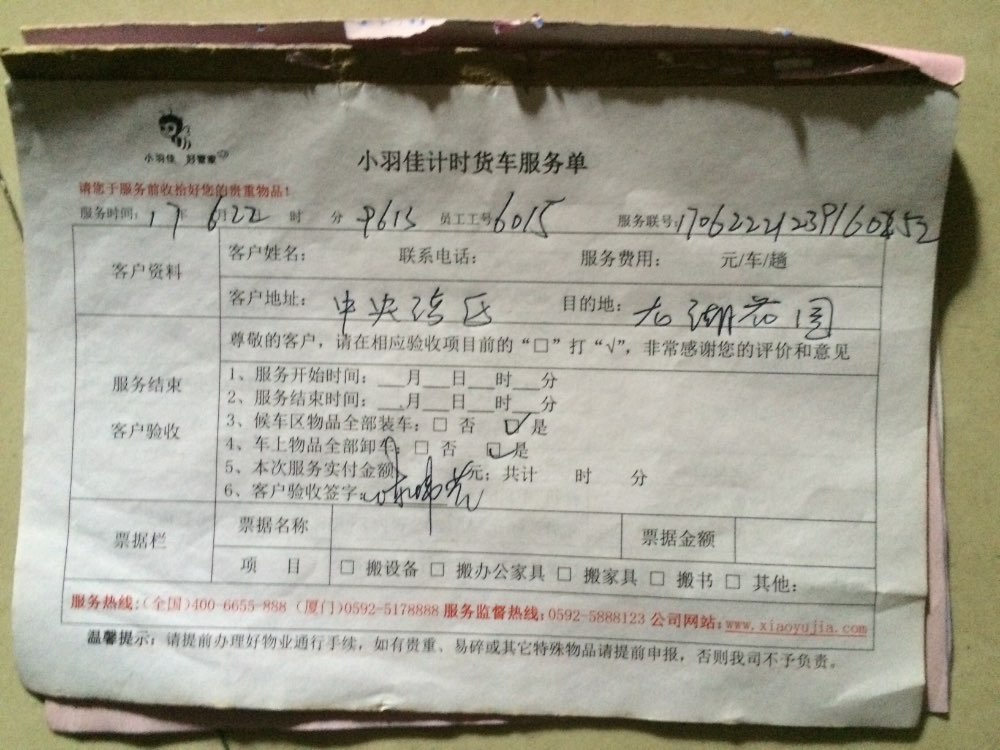 小羽佳 好管家
小羽佳计时货车服务单
请您于服务前收拾好您的贵重物品!
服务时间: 17 年 6 月 22 时 分 员工工号 6015 服务联号:
客户资料
客户姓名: 联系电话: 服务费用: 元/车/趟
客户地址: 中央湾区 目的地: 花园
服务结束
客户验收
尊敬的客户,请在相应验收项目前的“□”打“√”,非常感谢您的评价和意见
1、服务开始时间:___月___日___时___分
2、服务结束时间:___月___日___时___分
3、候车区物品全部装车:□ 否 ☑是
4、车上物品全部卸车:□ 否 ☑是
5、本次服务实付金额 元;共计 时 分
6、客户验收签字:
票据栏 票据名称 票据金额
项 目 □ 搬设备 □ 搬办公家具 □ 搬家具 □ 搬书 □ 其他:
服务热线:(全国)400-6655-888 (厦门)0592-5178888 服务监督热线:0592-5888123 公司网站:www.xiaoyujia.com
温馨提示:请提前办理好物业通行手续,如有贵重、易碎或其它特殊物品请提前申报,否则我司不予负责。